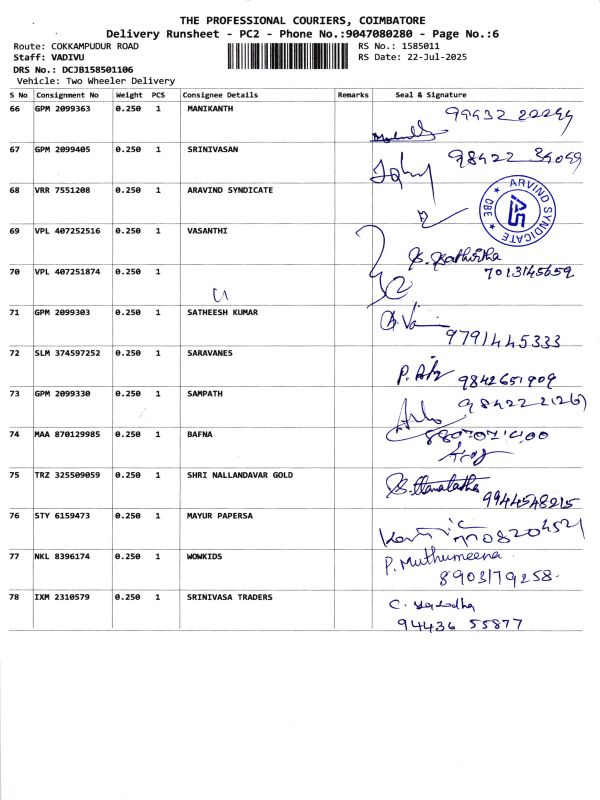 THE PROFESSIONAL COURIERS, COIMBATORE
Delivery Runsheet - PC2 - Phone No.:9047080280 - Page No.:6
Route: COKKAMPUDUR ROAD
Staff: VADIVU
DRS No.: DCJB158501106
Vehicle: Two Wheeler Delivery
RS No.: 1585011
RS Date: 22-Jul-2025
S No Consignment No Weight PCS Consignee Details Remarks Seal & Signature
66 GPM 2099363 0.250 1 MANIKANTH
67 GPM 2099405 0.250 1 SRINIVASAN
68 VRR 7551208 0.250 1 ARAVIND SYNDICATE
ARVIND SYNDICATE
CBE
AS
69 VPL 407252516 0.250 1 VASANTHI
70 VPL 407251874 0.250 1 7013145659
71 GPM 2099303 0.250 1 SATHEESH KUMAR
9791445333
72 SLM 374597252 0.250 1 SARAVANES
9842651909
73 GPM 2099330 0.250 1 SAMPATH
74 MAA 870129985 0.250 1 BAFNA
75 TRZ 325509059 0.250 1 SHRI NALLANDAVAR GOLD
9944548215
76 STY 6159473 0.250 1 MAYUR PAPERSA
77 NKL 8396174 0.250 1 WOWKIDS P. Muthumeena
8903179258
78 IXM 2310579 0.250 1 SRINIVASA TRADERS
94436 55877